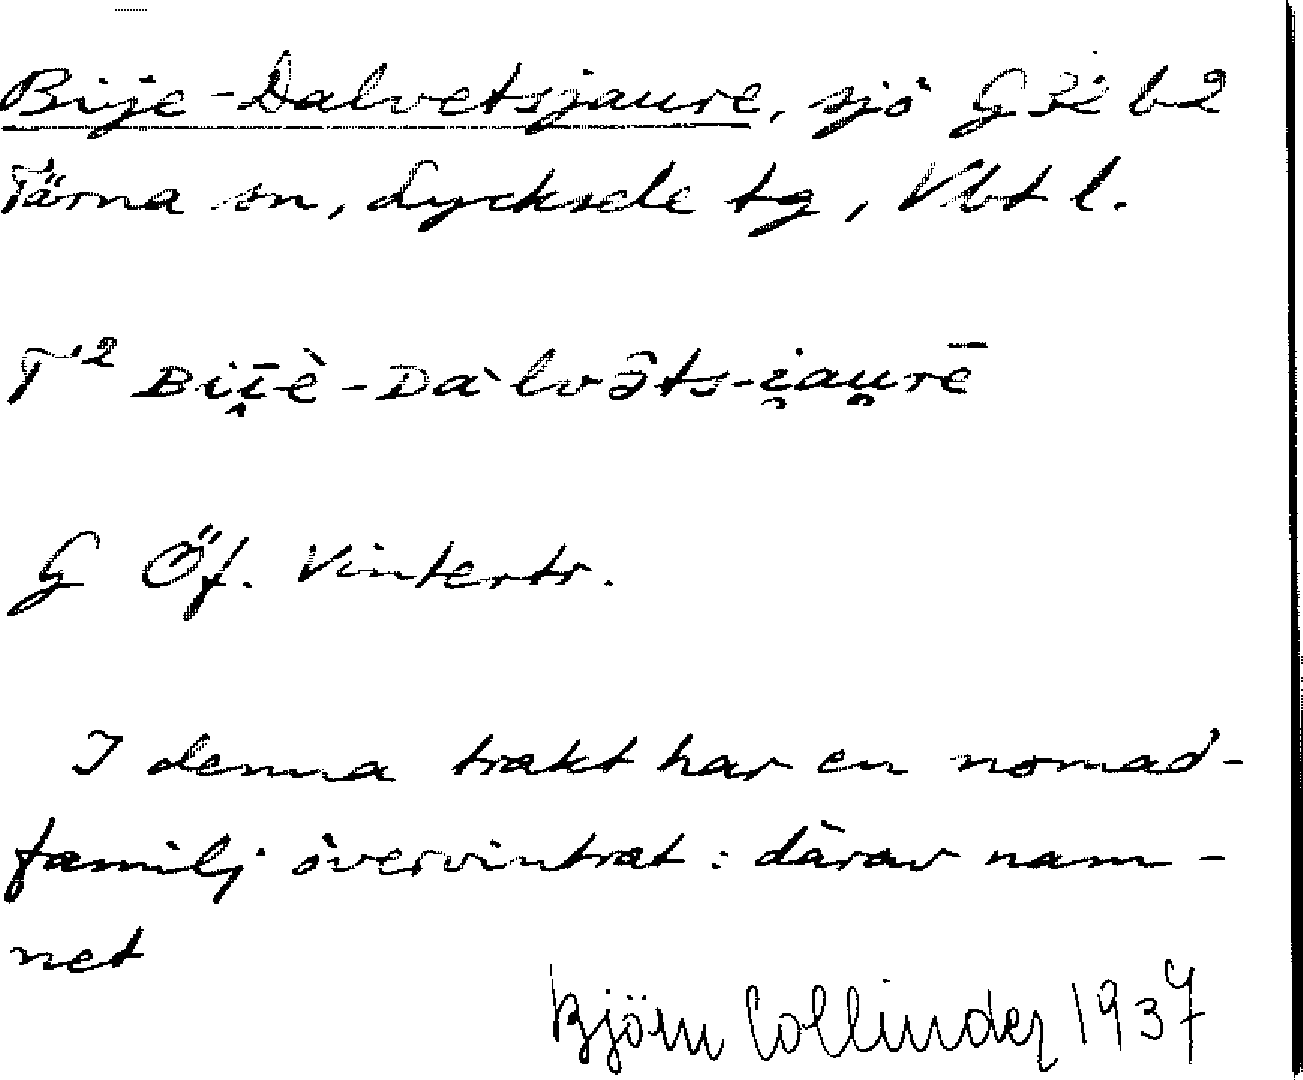 Bije-Dalvetsjaure, sjö G 32 b 2
Tärna sn, Lycksele tg, Vbt l.
T²
G Öf. Vintertr.
I denna trakt har en nomad-
familj övervintrat: därav nam-
net
Björn Collinder 1937